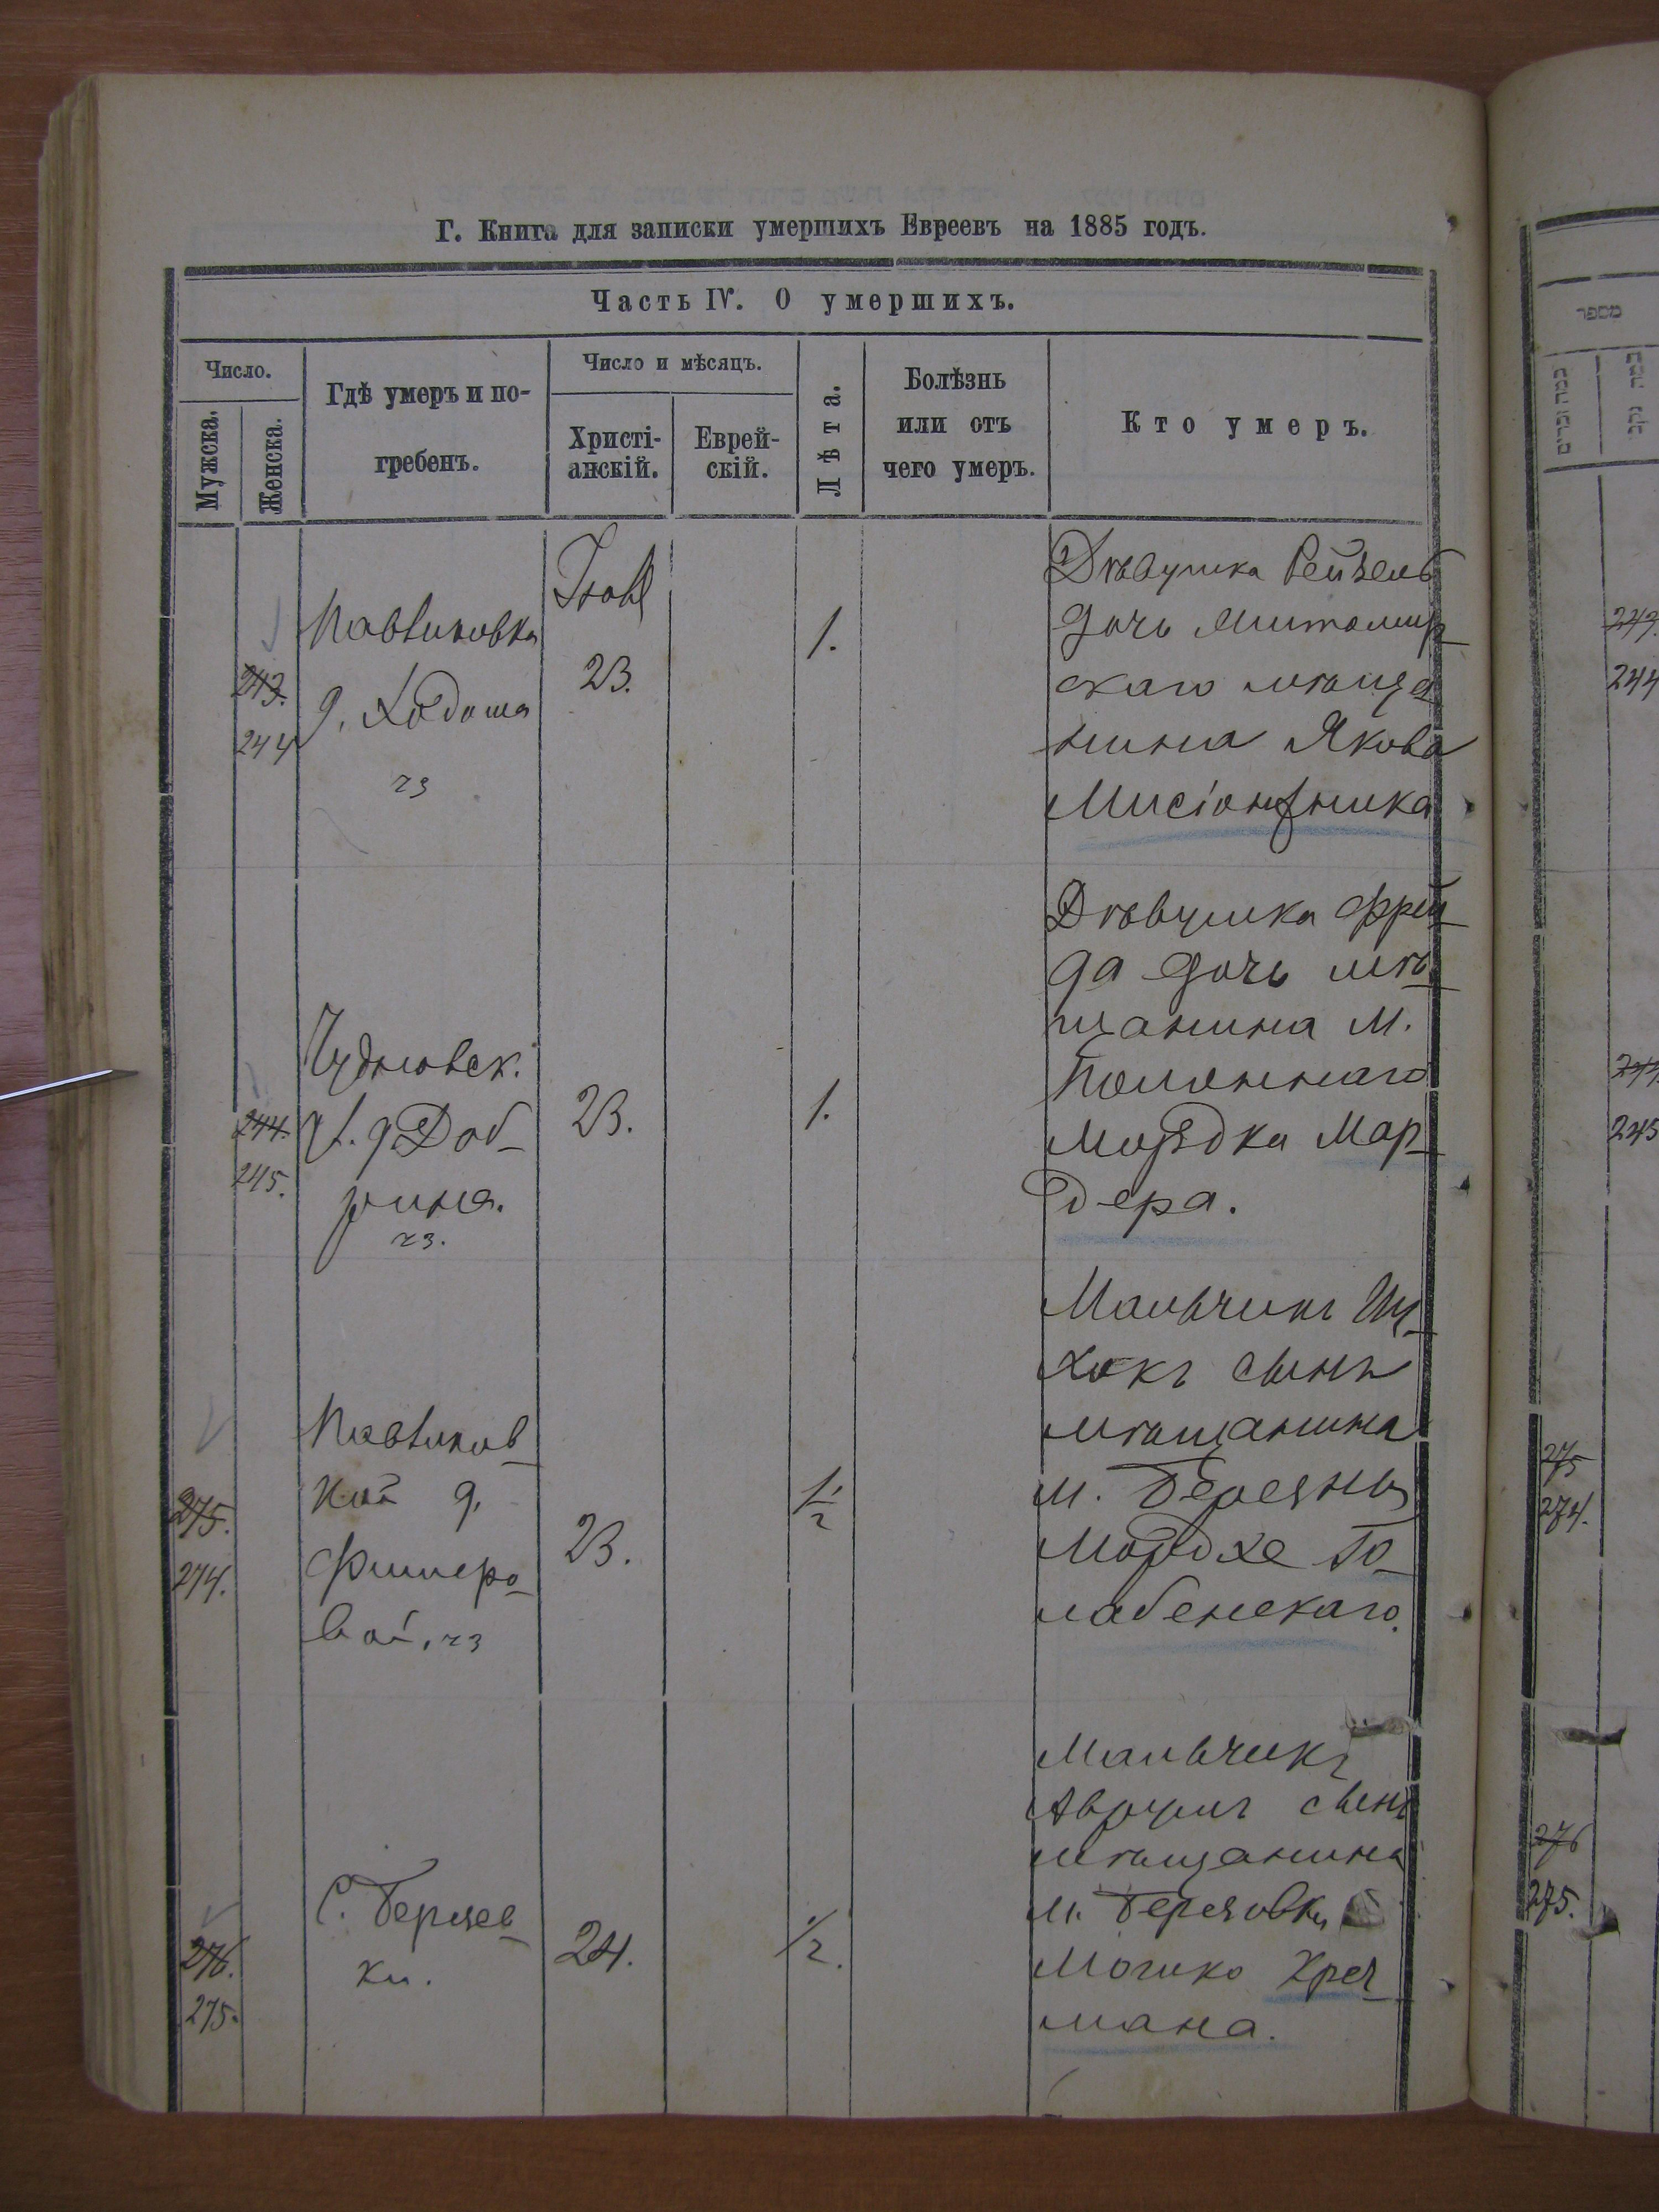 Г. Книга для записки умершихъ Евреевъ на 1885 годъ.
Часть IV. О умершихъ.
Число.
Мужска.
Женска.
Гдѣ умеръ и по-
гребенъ.
Число и мѣсяцъ.
Христі-
анскій.
Еврей-
скій.
Лѣта.
Болѣзнь
или отъ
чего умеръ.
Кто умеръ.
243.
244
д. Ходоша
чз
23.
1.
Дѣвушка Рейзель
дочь Житомир
скаго мѣща
нина Якова
Мисіонжника
244.
245.
Чудновск.
у. д. Доб-
рина.
чз.
23.
1.
Дѣвушка Фрей
да дочь мѣ
щанина м.
Полоннаго
Мордка Мар
дера.
275.
274.
кой д.
Фишеро
вой, чз
23.
1/2
Мальчикъ Иц
хокъ сынъ
мѣщанина
м. Березны
Мордхе Го
лабенскаго.
276.
275.
24.
1/2.
Мальчикъ
Аврумъ сынъ
мѣщанина
м. Березовки
Мошко Креч
мана.
מספר
כמה זכרים
כמה נקב
243.
244
244.
245
275
274.
276
275.